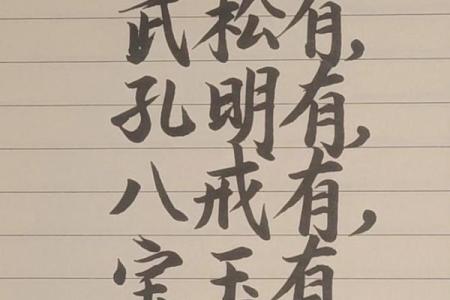 武松有,
孔明有,
八戒有,
宝玉有